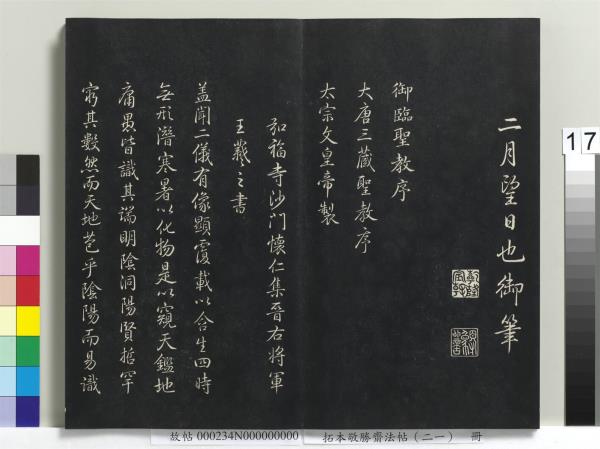 二月望日也御筆
御臨聖教序
大唐三藏聖教序
太宗文皇帝製
弘福寺沙門懷仁集晉右將軍
王羲之書
蓋聞二儀有像顯覆載以含生四時
無形潛寒暑以化物是以窺天鑑地
庸愚皆識其端明陰洞陽賢哲罕
窮其數然而天地苞乎陰陽而易識
17
故帖 000234N000000000
拓本敬勝齋法帖（二一） 冊